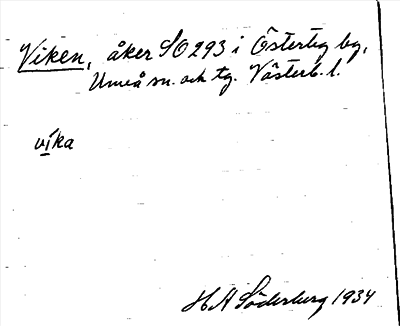 Viken, åker SO 293 i Österteg by,
Umeå sn. och tg. Västerb. l.
vika
H A Söderberg 1934